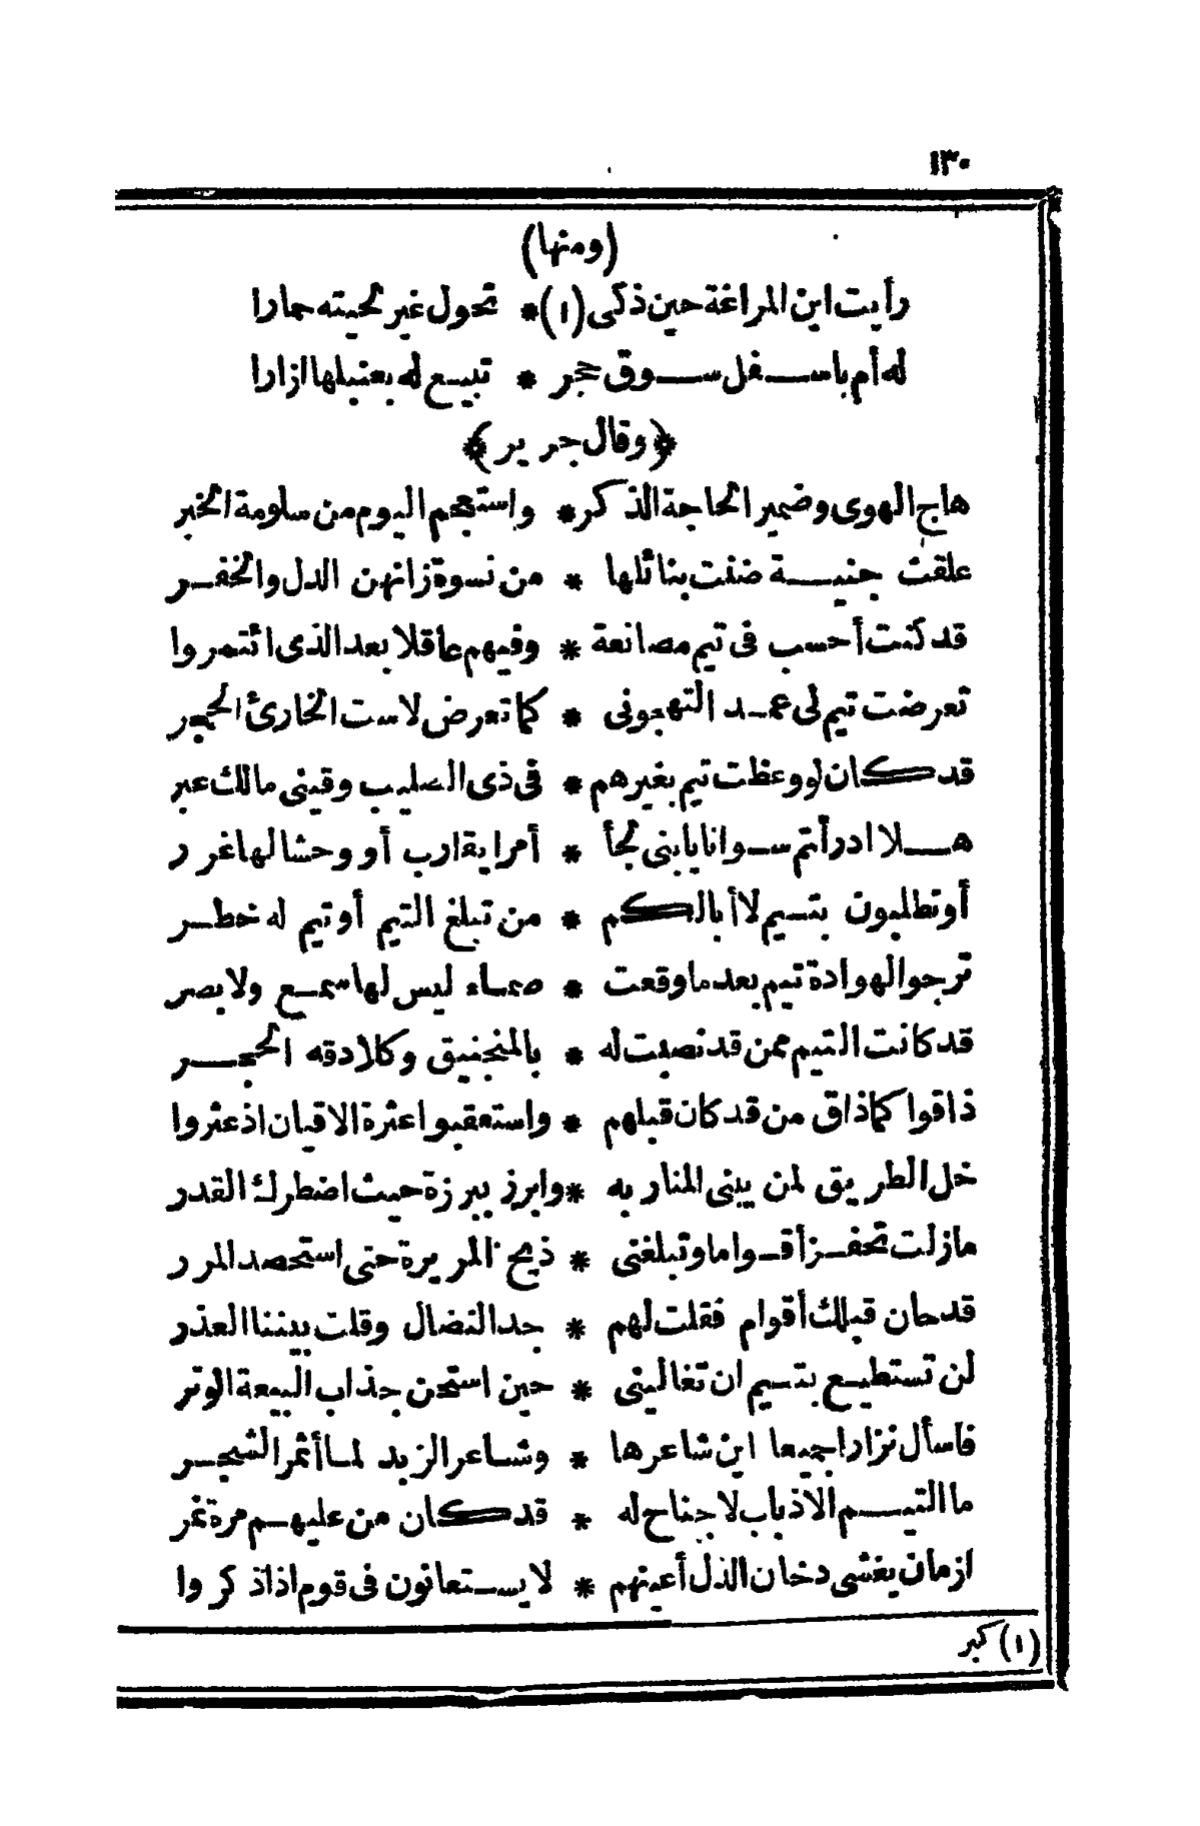 ١٣٠
(ومنها)
رأيت ابن المراغة حين ذكى (١) * تحول غير لحيته حمارا
له أم باسفل سوق حجر * تبيع له بعنبلها ازارا
﴿وقال جرير﴾
هاج الهوى وضمير الحاجة الذكر * واستعجم اليوم من سلومة الخبر
علقت جنية ضنت بنائلها * من نسوة زانهن الدل والخفر
قد كنت أحسب فى تيم مصانعة * وفيهم عاقلا بعد الذى ائتمروا
تعرضت تيم لى عمد التهجونى * كما تعرض لاست الخارئ الحجر
قد كان لو وعظت تيم بغيرهم * فى ذى الصليب وقينى مالك عبر
هلا ادرأتم سوانا يا بنى لجأ * أمرا يقارب أو وحشا لها غرر
أو تطلبون بتيم لا أبا لكم * من تبلغ التيم أو تيم له خطر
ترجو الهوادة تيم بعد ما وقعت * صماء ليس لها سمع ولا بصر
قد كانت التيم ممن قد نصبت له * بالمنجنيق وكلا دقه الحجر
ذاقوا كما ذاق من قد كان قبلهم * واستعقبوا عثرة الاقيان اذ عثروا
خل الطريق لمن يبنى المنار به * وابرز ببرزة حيث اضطرك القدر
ما زلت تحفز أقواما وتبلغنى * ذيح المريرة حتى استحصد المرر
قد حان قبلك أقوام فقلت لهم * جد النضال وقلت بيننا العذر
لن تستطيع بتيم ان تغالبنى * حين استحن جذاب البيعة الوتر
فاسأل نزارا جميعا اين شاعرها * وشاعر الزبد لما أثمر الشجر
ما التيم الا ذباب لا جناح له * قد كان من عليهم مرة نمر
ازمان يغشى دخان الذل أعينهم * لا يستعانون فى قوم اذا ذكروا
(١) كبر